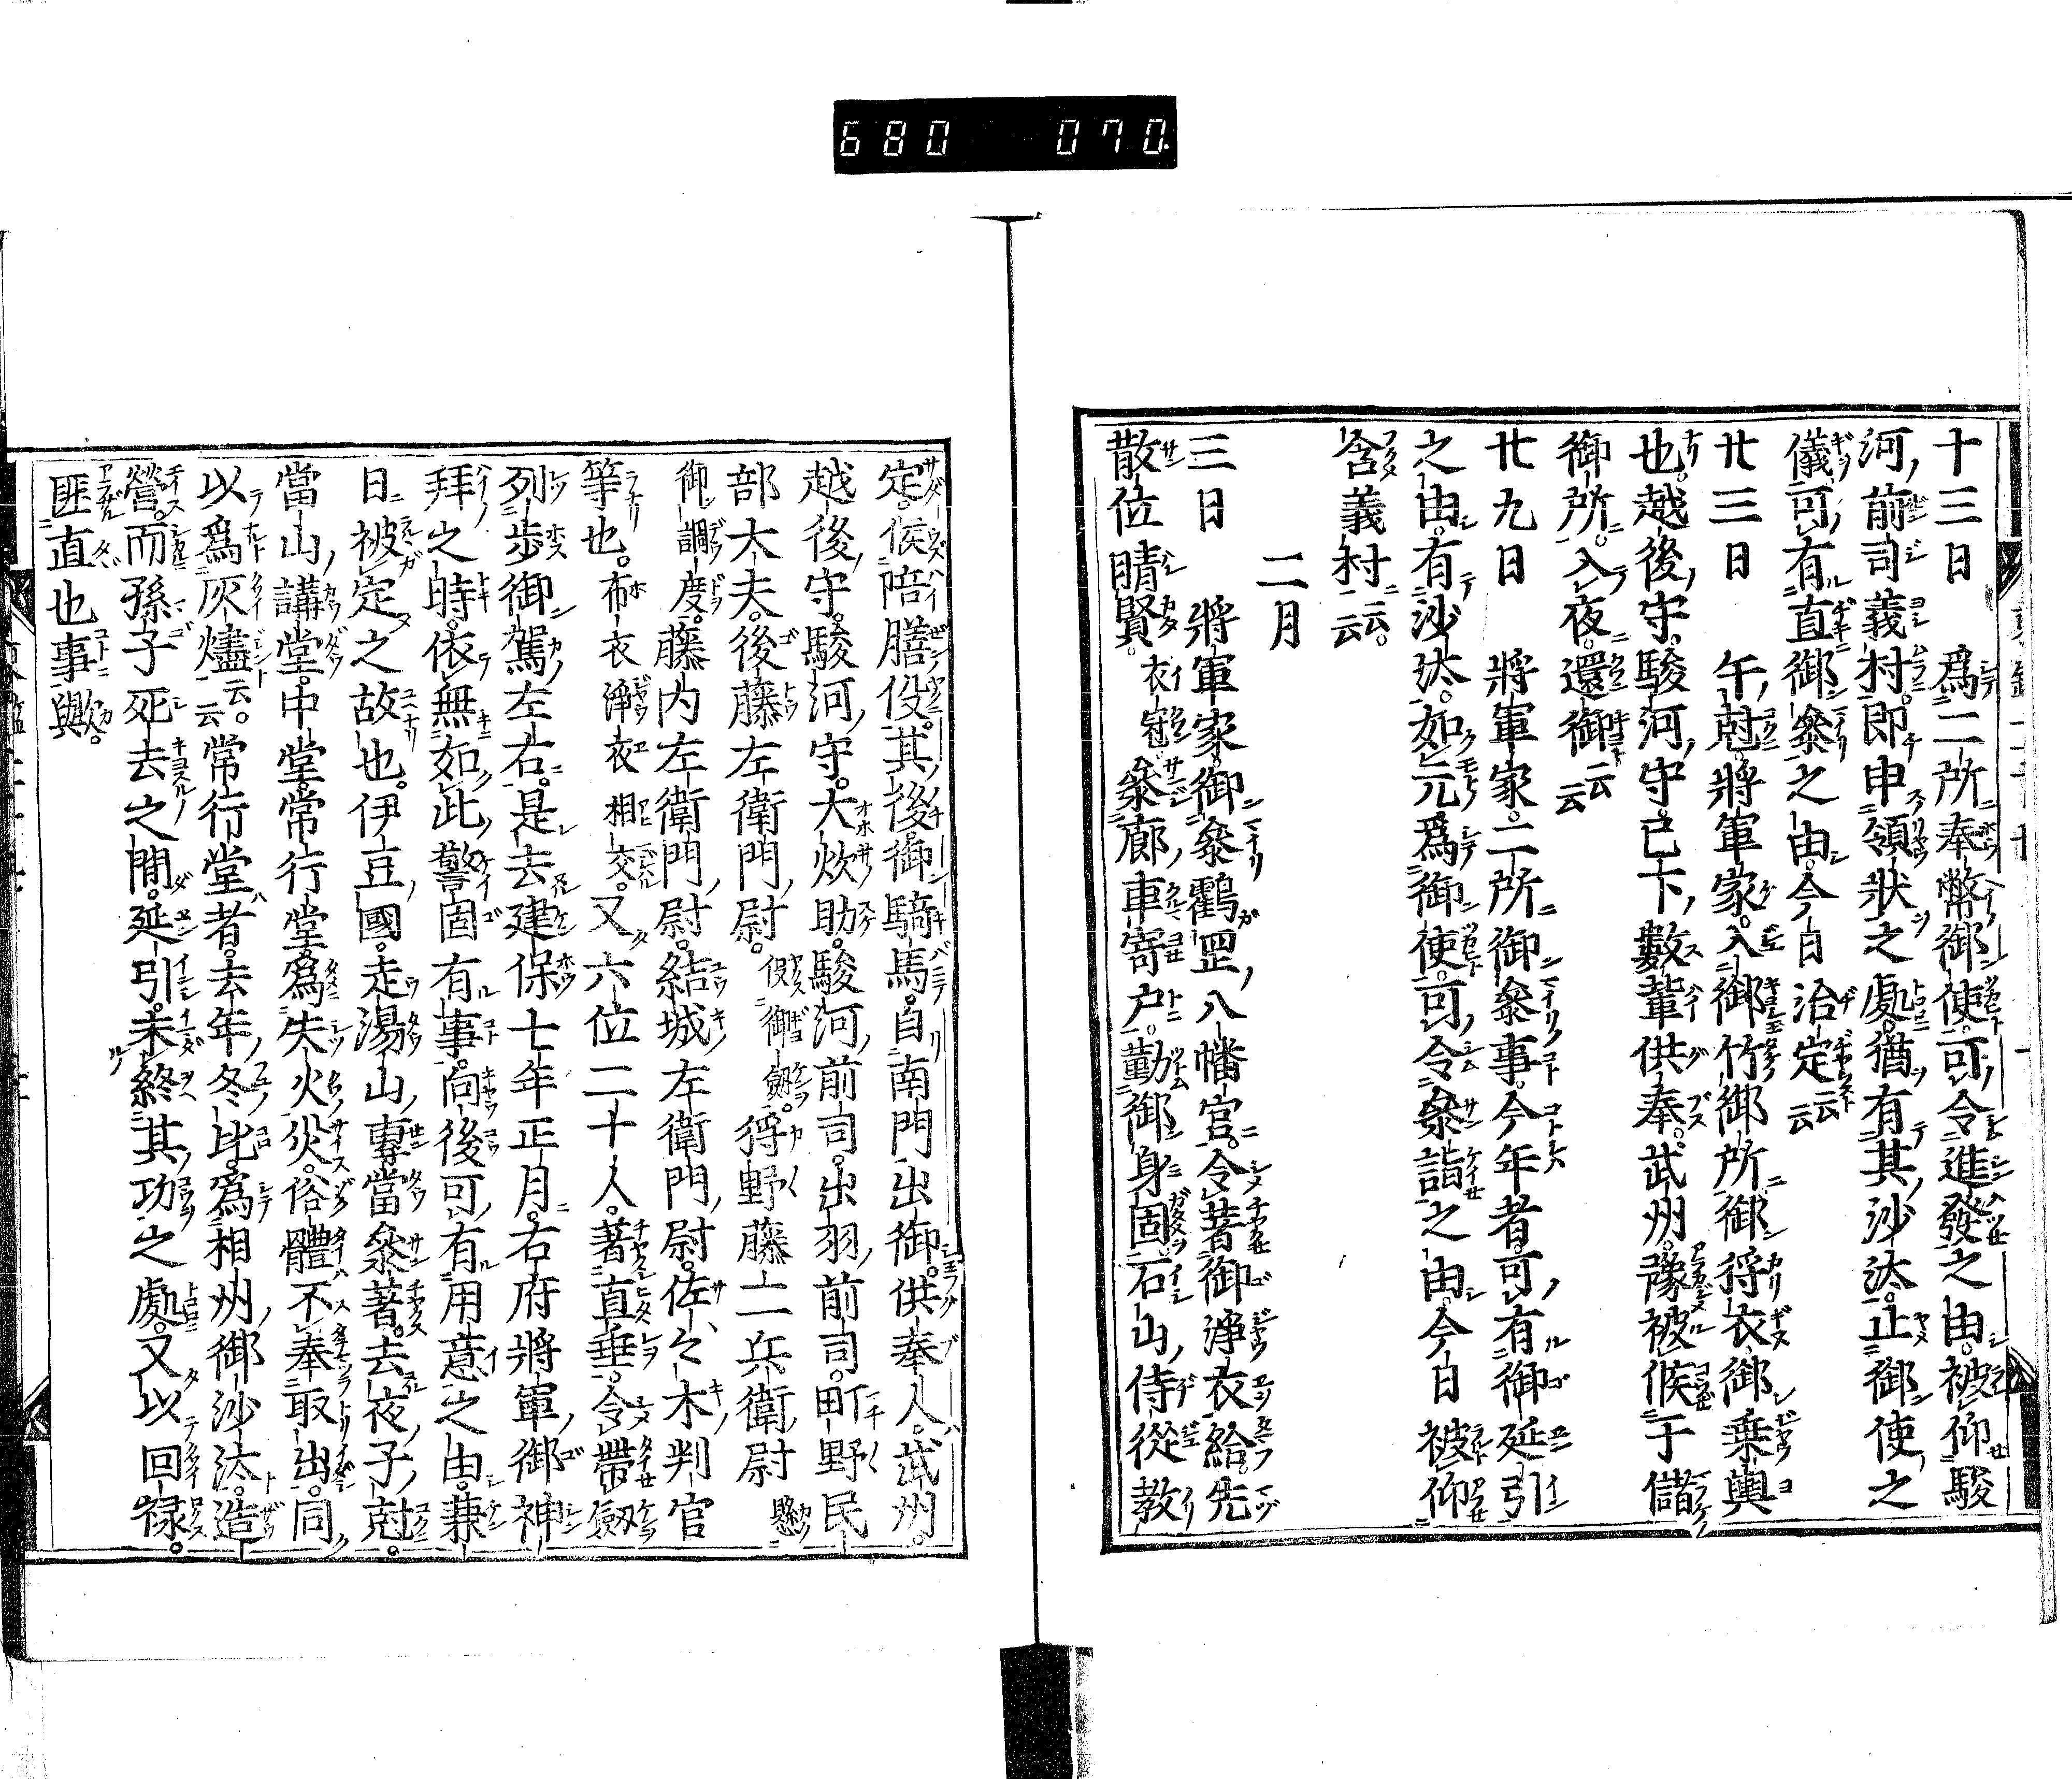 680 070
十三日 爲二所奉幣御使可令進發之由被仰駿
河前司義村即申領狀之處猶有其沙汰止御使之
儀可有直御參之由今日治定云云
廿三日 午尅將軍家入御竹御所御狩衣御乗輿
也越後守駿河守已下數輩供奉武州豫被候于儲
御所入夜還御云云
廿九日 將軍家二所御參事今年者可有御延引
之由有沙汰如元爲御使可令參詣之由今日被仰
含義村云云
二月
三日 將軍家御參鸖罡八幡宮令著御淨衣給先
散位晴賢衣冠參廊車寄戸勤御身固石山侍從教
定候陪膳役其後御騎馬自南門出御供奉人武州
越後守駿河守大炊助駿河前司出羽前司町野民
部大夫後藤左衛門尉假御劔狩野藤二兵衛尉懸
御調度藤内左衛門尉結城左衛門尉佐々木判官
等也布衣淨衣相交又六位二十人著直垂令帶劔
列歩御駕左右是去建保七年正月右府將軍御神
拜之時依無如此警固有事向後可有用意之由兼
日被定之故也伊豆國走湯山專當參著去夜子尅
當山講堂中堂常行堂爲失火災俗體不奉取出同
以爲灰燼云云常行堂者去年冬比爲相州御沙汰造
營而孫子死去之間延引未終其功之處又以回禄
匪直也事歟